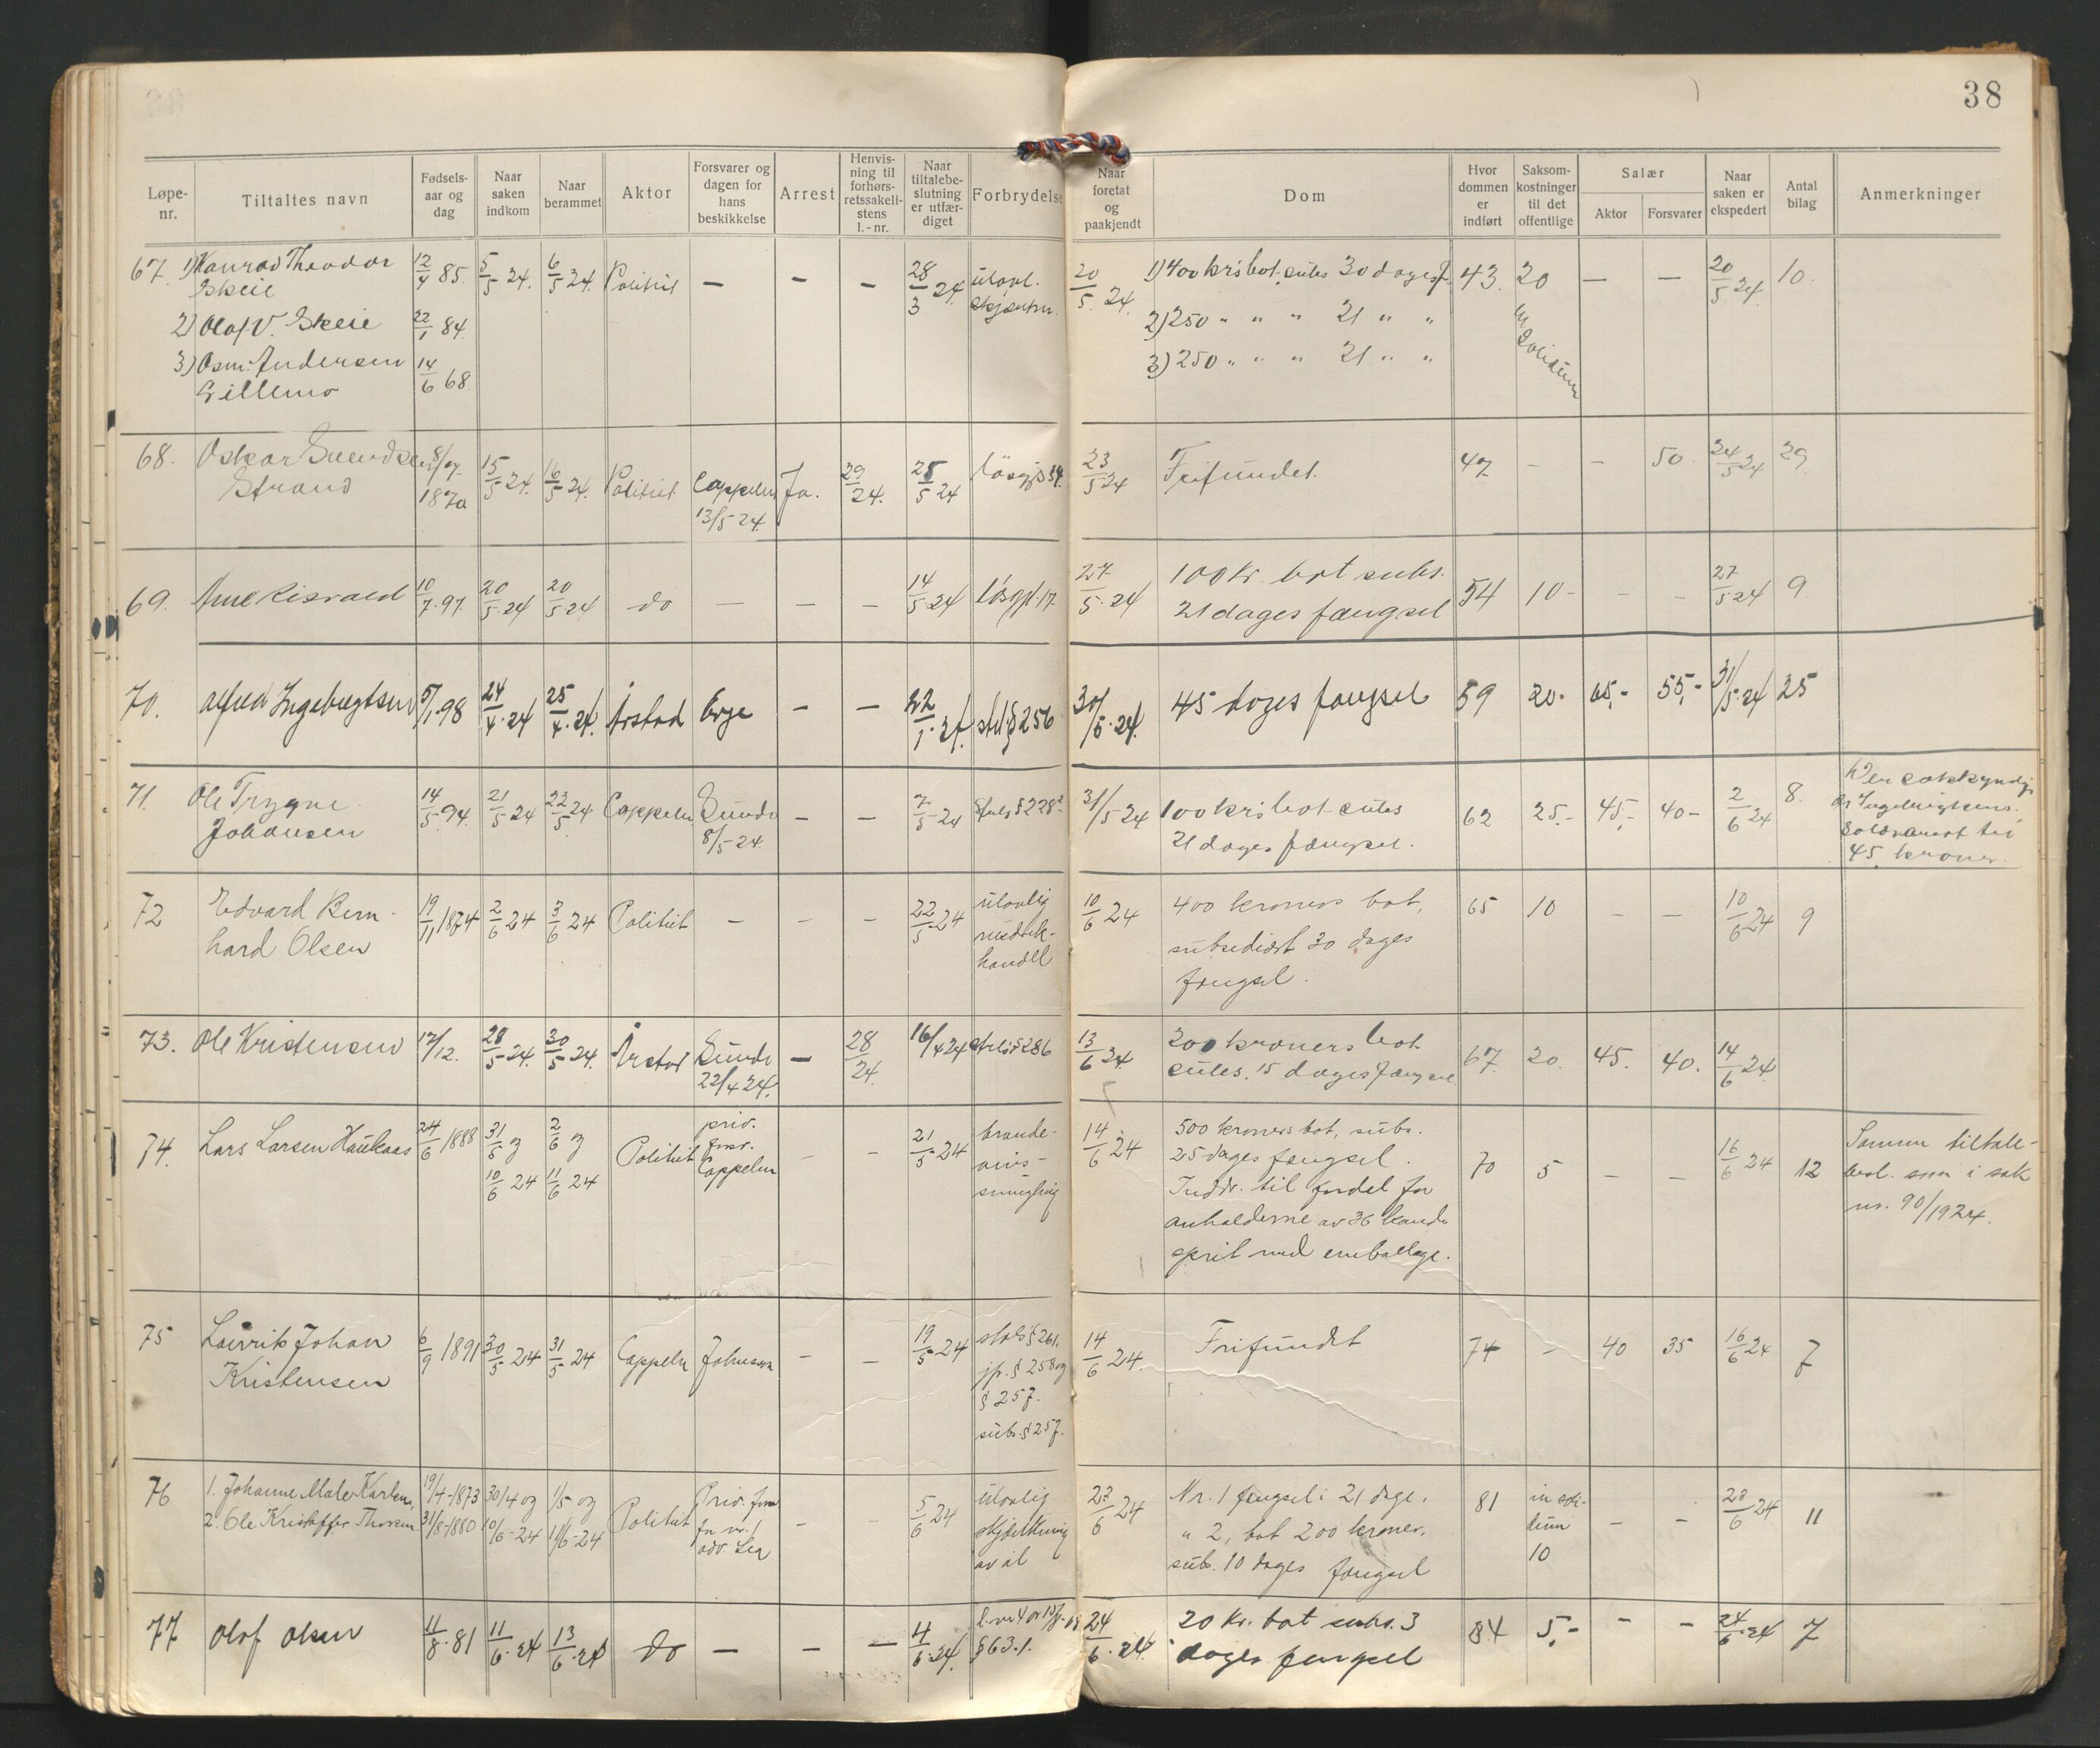 38
Løpe-nr.
Tiltaltes navn
Fødsels-aar og dag
Naar saken indkom
Naar berammet
Aktor
Forsvarer og dagen for hans beskikkelse
Arrest
Henvis-ning til forhørs-retssakeli-stens l.-nr.
Naar tiltalebe-slutning er utfær-diget
Forbrydelse
Naar foretat og paakjendt
Dom
Hvor dommen er indført
Saksom-kostninger til det offentlige
Salær
Aktor
Forsvarer
Naar saken er ekspedert
Antal bilag
Anmerkninger
67. 1) Konrad Theodor 12/4 85. 5/5 24. 6/5 24. Politiet — — — 28/3 24. ulovl. 20/5 24. 1) 400 kr's bot subs 30 dages f. 43. 20 — — 20/5 24. 10.
Skeie skjænkn.
2) Olaf V. Skeie 22/1 84. 2) 250 " " " 21 " " in
3) Osm. Andersen 14/6 68. 3) 250 " " " 21 " " solidum
68. Oskar Svendsen 8/ 15/5 24. 16/5 24. Politiet Cappelen Ja. 29/24. 28/5 24 løsgjs 23/5 24 Frifundet. 47 - - 50. 24/5 24 29
Strand 1870 13/5 24.
69. Arne 10/7 97 20/5 24 20/5 24 do — — — 14/5 24 løsgjl. 17 27/5 24 100 kr. bot subs. 54 10- - - 27/5 24 9.
21 dages fængsel
70. Alfred Ingebrigtsen 5/1 98 24/4 24 25/4 24. Årstad Erge — — 22/1 24. strl § 256 30/5 24. 45 dages fængsel 59 20- 65,- 55,- 31/5 24 25
71. Ole Trygve 14/5 94. 21/5 24 22/5 24 Cappelen Sunde — — 7/5 24 Strls § 228 31/5 24 100 kr's bot subs 62 25,- 45,- 40- 2/6 24 8. Den sakkyndige
Johansen 8/5 24. 21 dages fængsel. dr Ingebrigtsens
til
45 kroner.
72 Edvard Bern- 19/11 1874 2/6 24 3/6 24 Politiet - - - 22/5 24 ulovlig 10/6 24 400 kroners bot, 65 10 - - 10/6 24 9
hard Olsen rusdrik- subsidiært 30 dages
handel fængsel.
73. Ole Kristensen 17/12. 28/5 24. 30/5 24. Årstad Sunde — 28/24. 16/4 24 strls § 286 13/6 24. 200 kroners bot 67. 20. 45. 40. 14/6 24.
22/4 24. subs. 15 dages fængsel
74. Lars Larsen Haukaas 24/6 1888 31/5 og 2/6 og Politiet priv. - - 21/5 24 brænde- 14/6 24 500 kroners bot, subs. 70 5 - - 16/6 24 12 Samme tiltale-
10/6 24 11/6 24 forsv. vins- 25 dages fængsel. besl. som i sak
Cappelen smugling Inddr. til fordel for nr. 90/1924.
anholderne av 36 kander
sprit med emballage.
75 Laurits Johan 6/9 1891 30/5 24 31/5 24 Cappelen Johnson - - 19/5 24 strls § 261, 14/6 24. Frifundet 74 - 40 35 16/6 24 7
Kristensen jfr. § 258 og
§ 257.
subs. § 257.
76 1. Johanne Karlsen 19/4-1873 30/4 og 1/5 og Politiet Priv. forsv. - - 5/6 24 ulovlig 23/6 24 Nr. 1 fængsel i 21 dage. 81 in soli- - - 23/6 24 11
2. Ole Kristoffer Thorsen 31/8-1880 10/6-24 11/6-24 for nr. 1 skjænkning " 2, bot 200 kroner, dum
adv. Lea av øl subs. 10 dages fængsel 10
77 Olof Olsen 11/8 81 11/6 24 13/6 24 do — — — 4/6 24. § 63.1. 24/6 24. 20 kr. bot subs. 3 84 5,- - - 24/6 24 7
dages fængsel